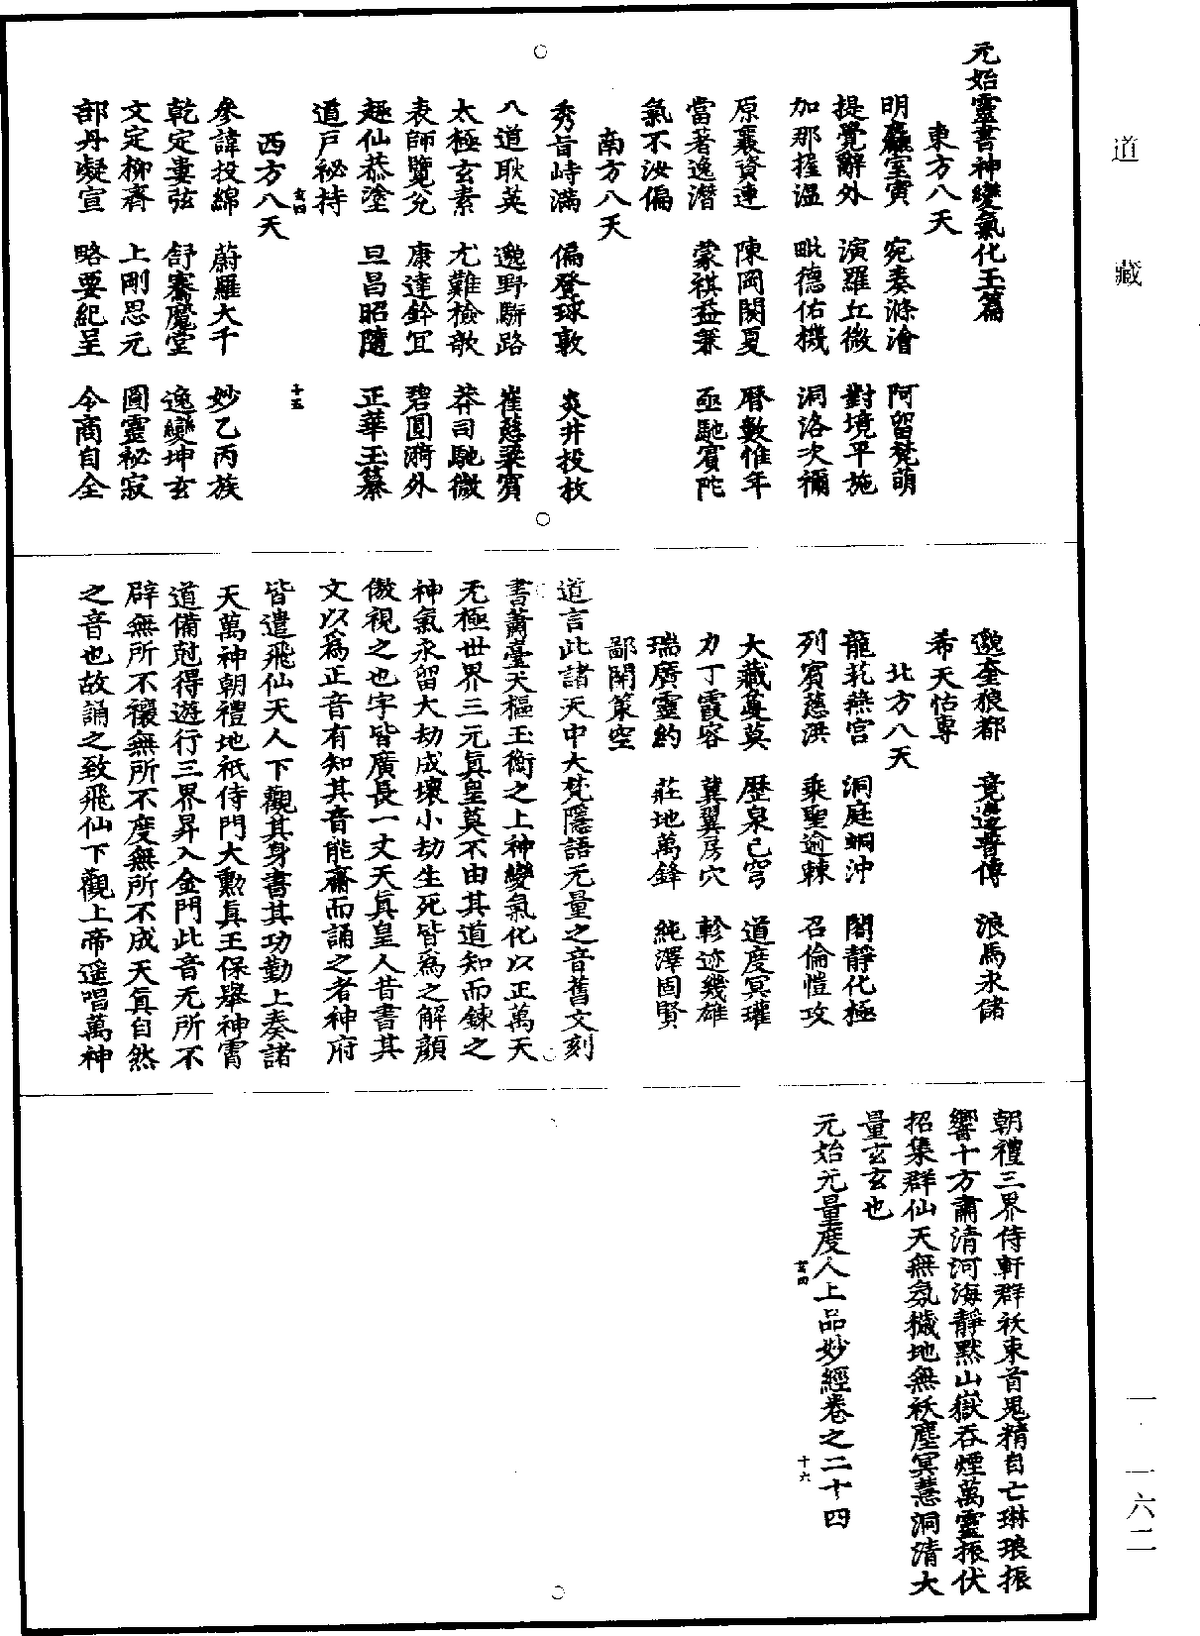 道藏
元始靈書神變氣化玉篇
東方八天
明廳室賓 宛奏滌澮 阿留梵萌
提覺辭外 演羅丘微 對境平施
加那握温 毗德佑機 洞洛次禰
原襄資連 陳岡闕夏 曆數惟年
當著逸潛 蒙祺益兼 亟馳賓陀
氣不汝偏
南方八天
秀音峙滿 偏登球敦 炎井投枚
八道耿英 邈野駢路 崔慈梁賓
太極玄素 尤難檢歆 莽司馳微
表師覽兊 康達鈐冝 碧圓漪外
趣仙恭塗 旦昌昭隨 正華玉纂
道戸祕持
玄四
西方八天
十五
參諱投綿 蔚羅大千 妙乙丙族
乾定婁弦 舒騫魔堂 逸變坤玄
文定柳齊 上剛思元 圓靈祕寂
部丹凝宣 略要紀呈 令商自全
邈奎狼都 竟邊普傳 浪馬永儲
希天怙專
北方八天
龍花燕宮 洞庭蜩沖 閤靜化極
列賓慈洪 乘聖逾棘 召倫愷攻
大藏蔓莫 歷泉已穹 道度冥瓘
力丁霞容 冀翼房穴 軫迹幾雄
瑞廣靈約 莊地萬鋒 純澤固賢
鄙開策空
道言此諸天中大梵隱語元量之音舊文刻
書蕭臺天樞玉衡之上神變氣化以正萬天
无極世界三元眞皇莫不由其道知而鍊之
神氣永留大劫成壞小劫生死皆爲之解顔
傲視之也字皆廣長一丈天眞皇人昔書其
文以爲正音有知其音能齋而誦之者神府
皆遣飛仙天人下觀其身書其功勤上奏諸
天萬神朝禮地祇侍門大勳眞王保舉神霄
道備尅得遊行三界昇入金門此音无所不
辟無所不禳無所不度無所不成天眞自然
之音也故誦之致飛仙下觀上帝遥唱萬神
朝禮三界侍軒群祅束首鬼精自亡琳琅振
響十方肅清河海靜默山嶽吞煙萬靈振伏
招集群仙天無氛穢地無祅塵冥慧洞清大
量玄玄也
元始元量度人上品妙經卷之二十四
玄四
十六
一·一六二